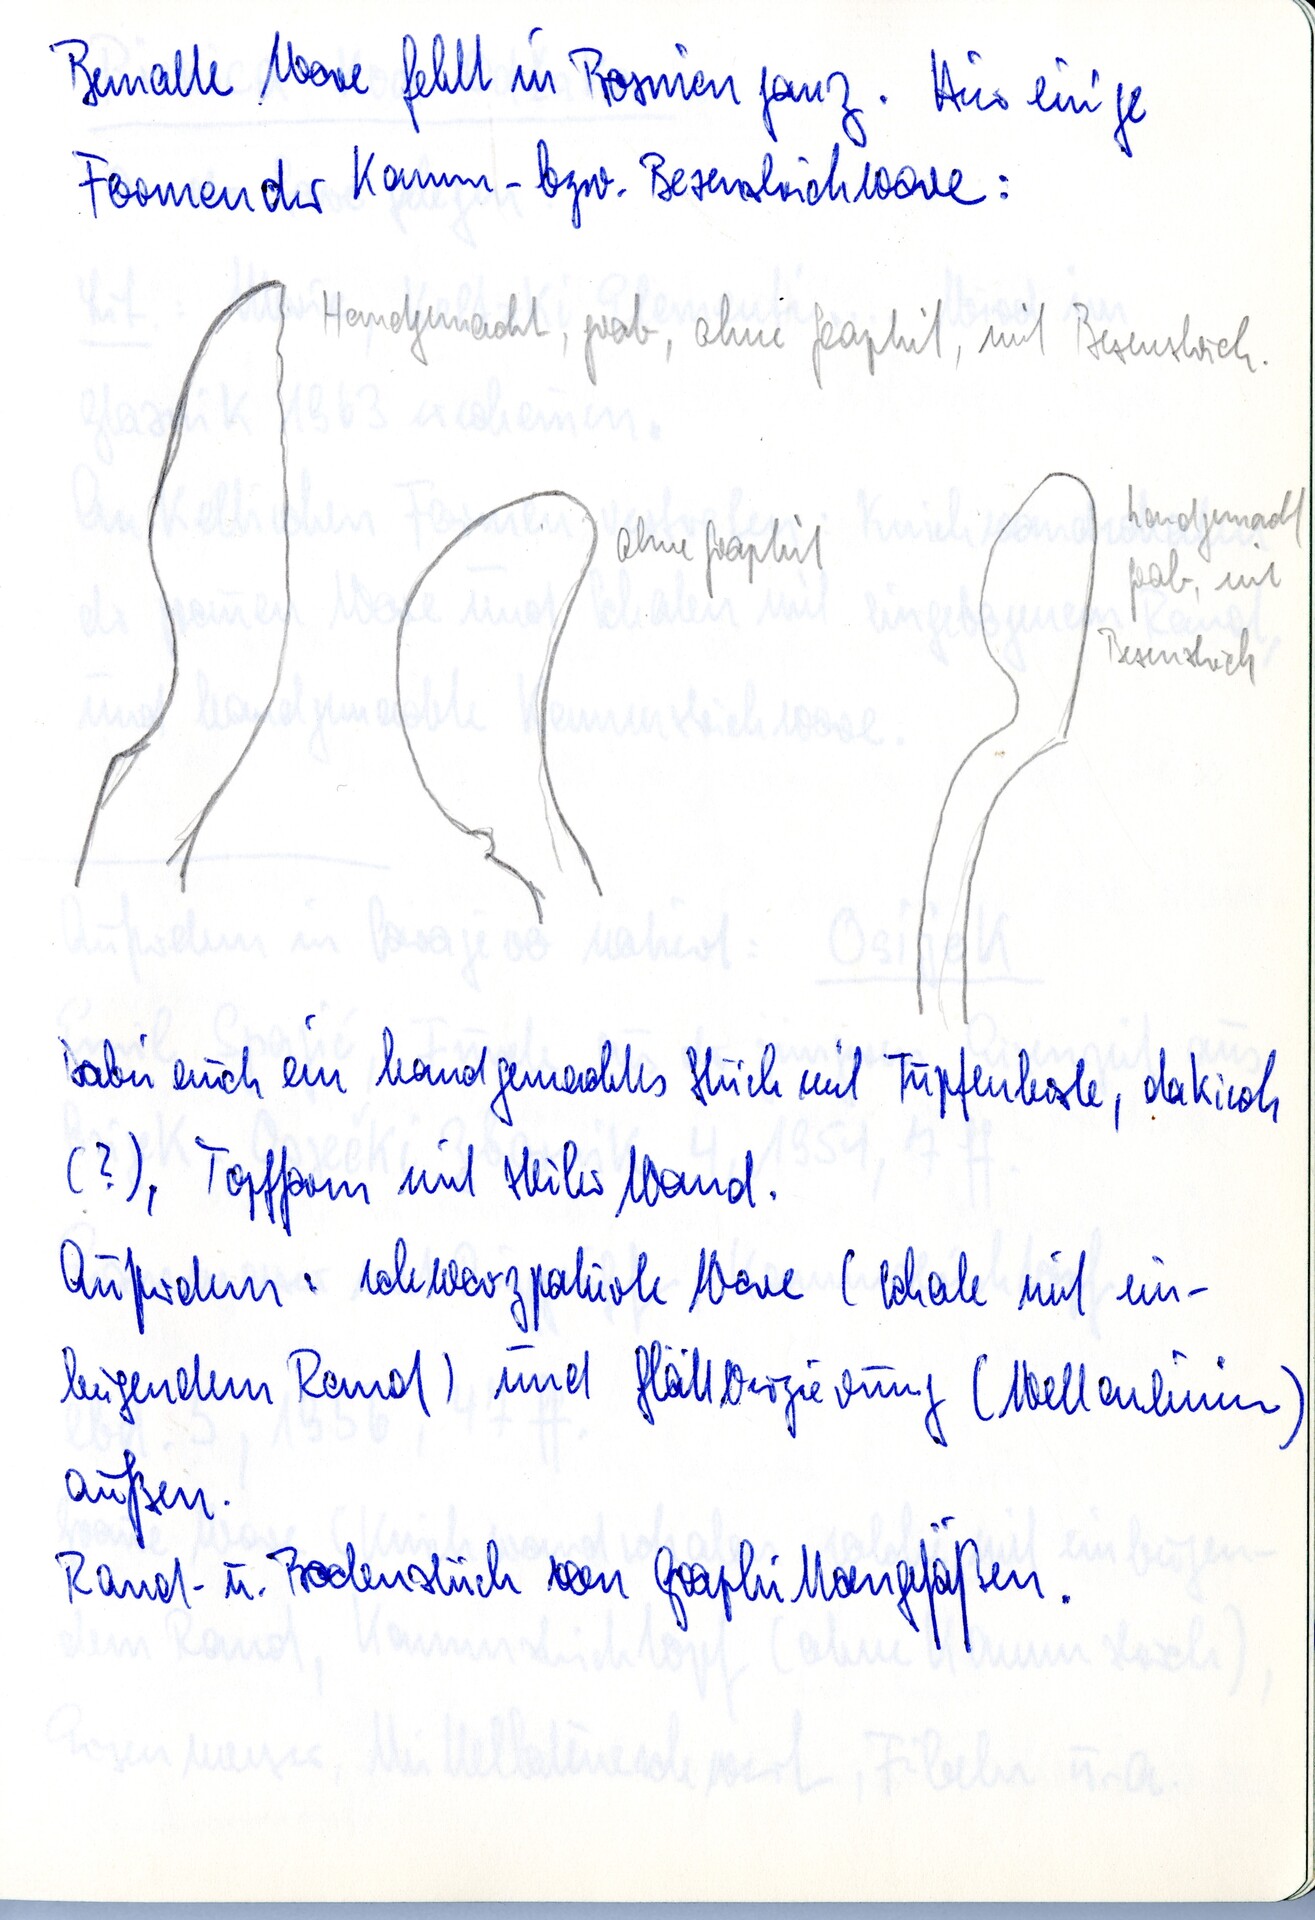 Bemalte Ware fehlt in Bosnien ganz. Hier einige
Formen der Kamm- bzw. Besenstrichware:
Handgemacht, grob, ohne Graphit, mit Besenstrich.
ohne Graphit
handgemacht
grob, mit
Besenstrich
Dabei auch ein handgemachtes Stück mit Tupfenleiste, dakisch
(?), Topfform mit steiler Wand.
Außerdem: schwarzpolierte Ware (Schale mit ein-
biegendem Rand) und Glättverzierung (Wellenlinien)
außen.
Rand- u. Bodenstück von Graphittongefäßen.